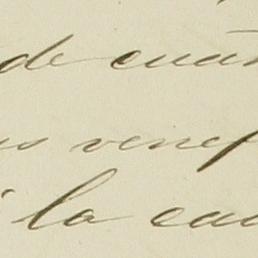 de cuan
us venef
la cau